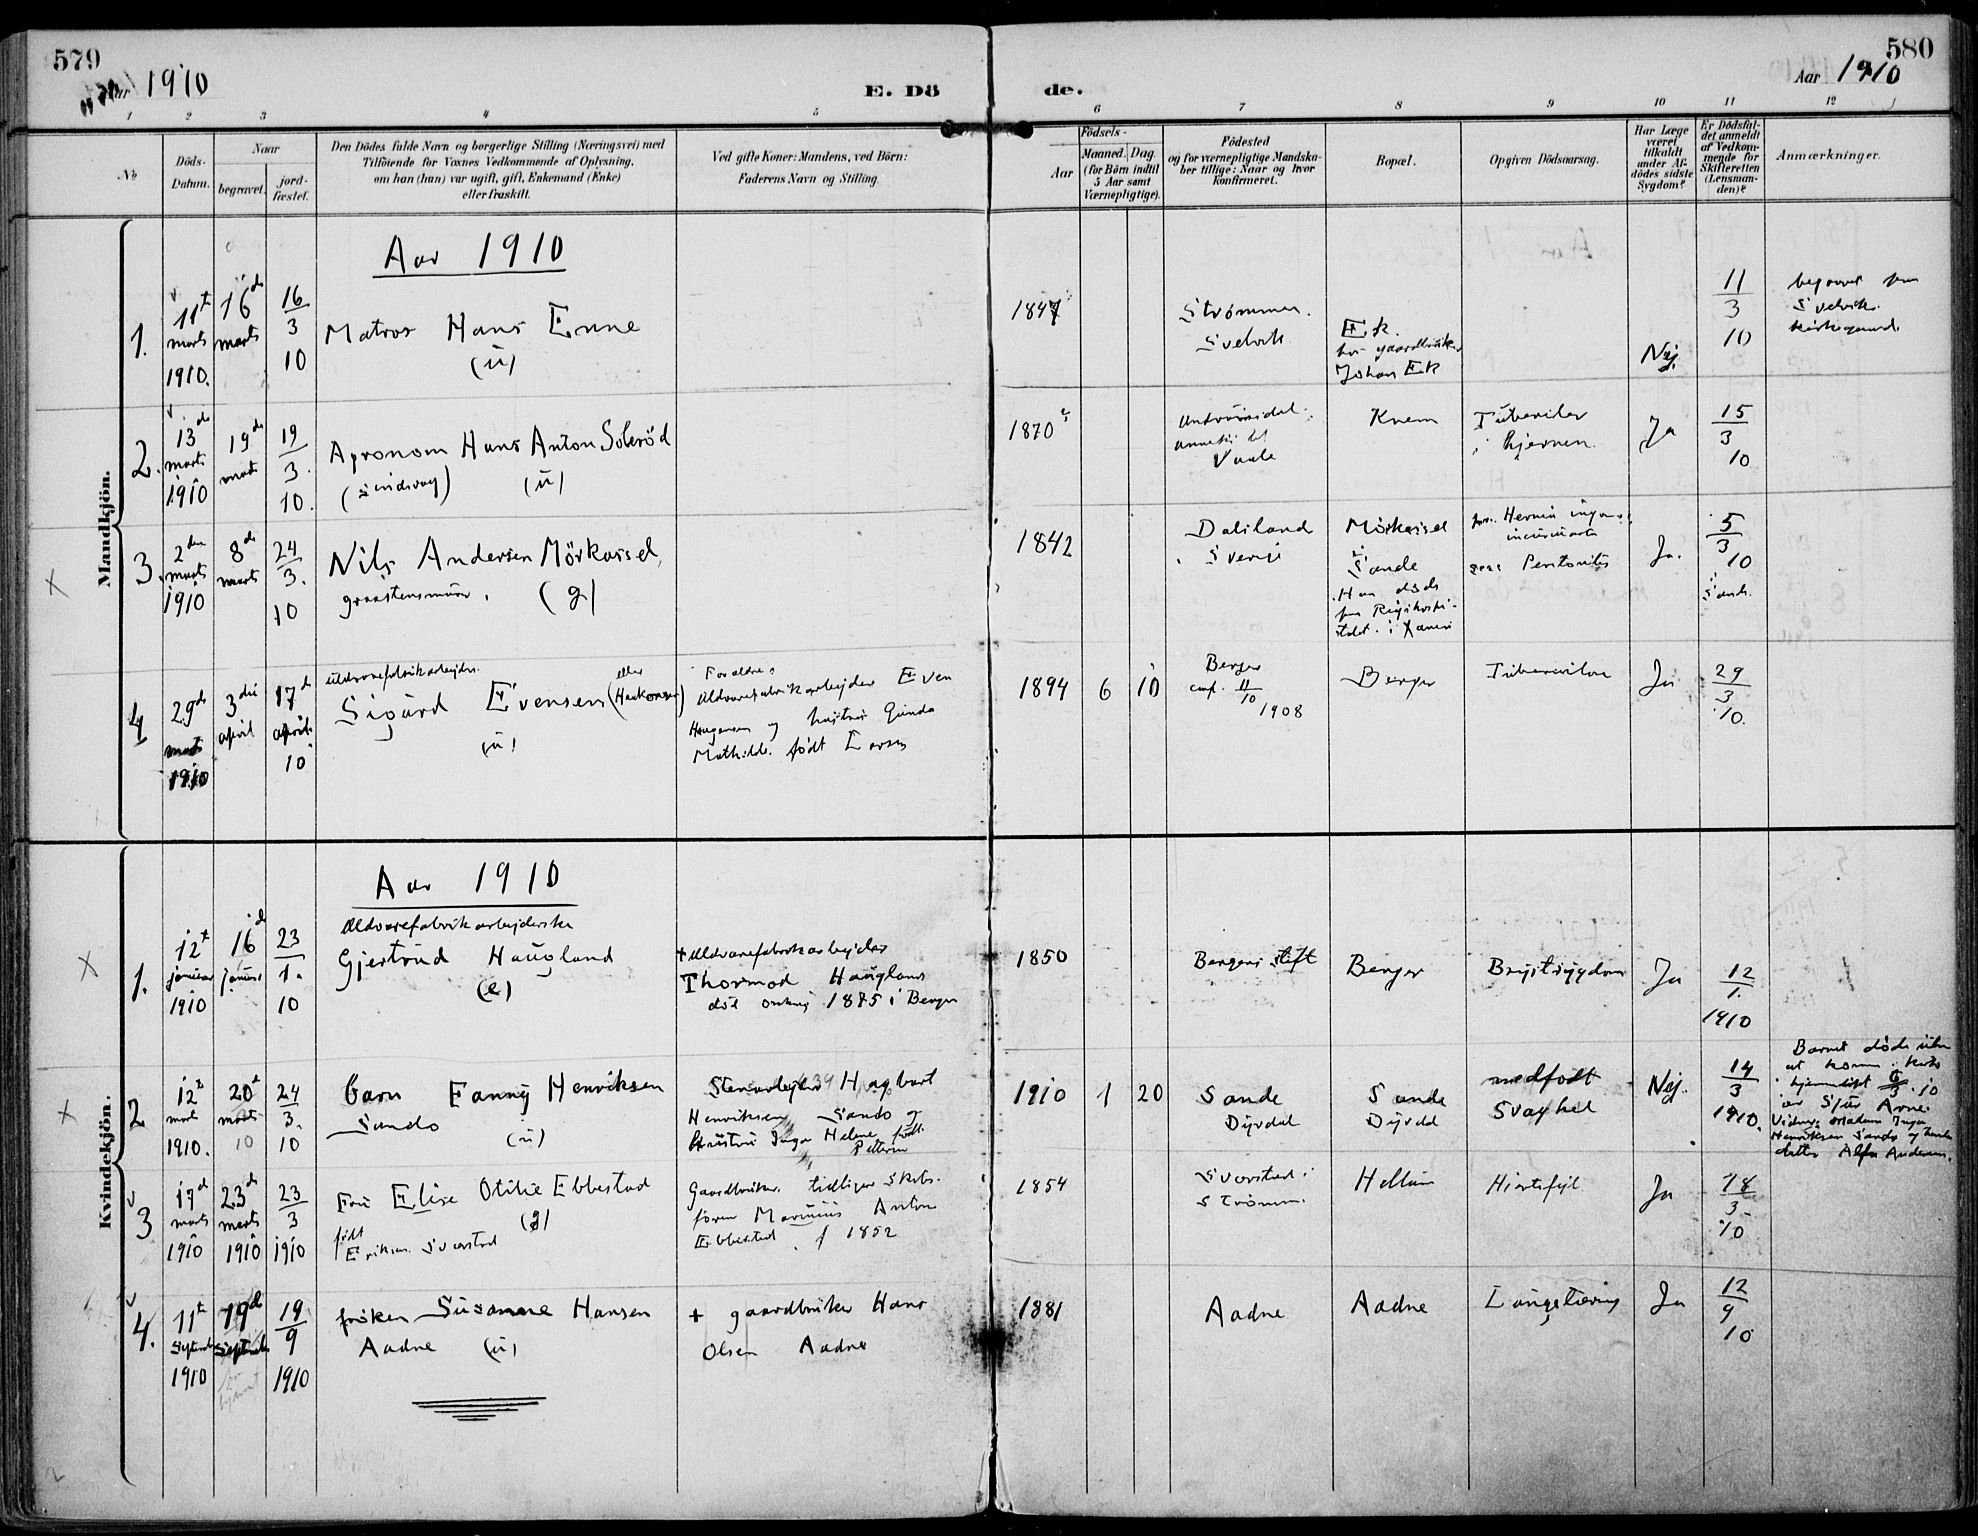 579
Aar 1910
E. Dö
de.
Aar 1910
580
1 2 3 4 5 6 7 8 9 10 11 12
No
Döds-
Datum.
Naar
begravet.
jord-
fæstet.
Den Dödes fulde Navn og borgerlige Stilling (Næringsvei) med
Tilföiende for Voxnes Vedkommende af Oplysning,
om han (hun) var ugift, gift, Enkemand (Enke)
eller fraskilt.
Ved gifte Koner: Mandens, ved Börn:
Faderens Navn og Stilling.
Födsels-
Aar
Maaned. Dag.
(for Börn indtil
5 Aar samt
Værnepligtige).
Födested
og for værnepligtige Mandska-
ber tillige: Naar og hvor
Konfirmeret.
Bopæl.
Opgiven Dödsaarsag.
Har Læge
været
tilkaldt
under Af-
dödes sidste
Sygdom?
Er Dödsfal-
det anmeldt
af Vedkom-
mende for
Skifteretten
(Lensman-
den)?
Anmærkninger.
Mandkjön.
Aar 1910
1.
11te
marts
1910.
16de
marts
16
3
10
Matros Hans Enne
(u)
1847
Strømmen.
Svelvik
Ek.
hos gaardbruker
Johan Ek
Nej.
11
3
10
begravet paa
Svelvik
kirkegaard.
2.
13de
marts
1910
19de
marts
19
3.
10.
Agronom Hans Anton Soleröd
(u)
1870
Vaale
Knem
Tuberkler
i hjernen.
Ja
15
3
10
3.
2den
marts
1910
8de
marts
24
3.
10
Nils Andersen Mörkassel,
graastensmurer. (g)
1842
Dalsland
Sverige
Mörkassel
i
Sande
Han døde
paa Rigshospi-
talet. i
Hernia
Peritonitis
Ja.
5
3
10
Sande.
4
29de
marts
1910
3die
april
17de
april
10
Uldvarefabrikarbejder.
Sigurd Evensen (eller Haakonsen)
(u)
Forældre:
Uldvarefabrikarbejder Even
Haugensen og hustru Gunda
Mathilde født Larsen
1894 6 10
Berger
conf. 11
10
1908
Berger
Tuberculose
Ja
29
3
10.
Kvindekjön.
Aar 1910
1.
12te
januar
1910
16de
januar
23
1.
10
Uldvarefabrikarbejderske
Gjertrud Haugland
(e)
+ Uldvarefabrikarbejder
Thormod Haugland
død omkring 1875 i Berger
1850
Bergens stift
Berger
Brystsygdom
Ja
12
1.
1910
2
12te
marts
1910.
20de
marts
10
24
3.
10
barn Fanny Henriksen
Sando
(u)
Stenarbejder Hagbart
Henriksen Sando og
hustru Inga Helene født
Petersen
1910 1 20
Sande
Dyrdal
Sande
Dyrdal
medfødt
Svaghet
Nej.
14
3
1910.
Barnet døde uten
at komme i kirke
hjemmedøpt 6
3 . 10
Vidner: Madam Inga
Henriksen Sando og hendes
datter Alfa Andersen.
3
17de
marts
1910
23de
marts
1910
23
3
1910
Fru Elise Otilie Ebbestad
født (g)
Eriksen Svarstad
Gaardbruker. tidligere skibs-
fører Marinius Anton
Ebbestad f 1852
1854
Svarstad i
Strømm.
Hellum
Hjertefejl
Ja
18
3
10
4.
11te
September
1910
19de
September
19
9
1910
frøken Susanne Hansen
Aadne (u)
+ gaardbruker Hans
Olsen Aadne
1881
Aadne
Aadne
Lungetæring
Ja
12
9
10